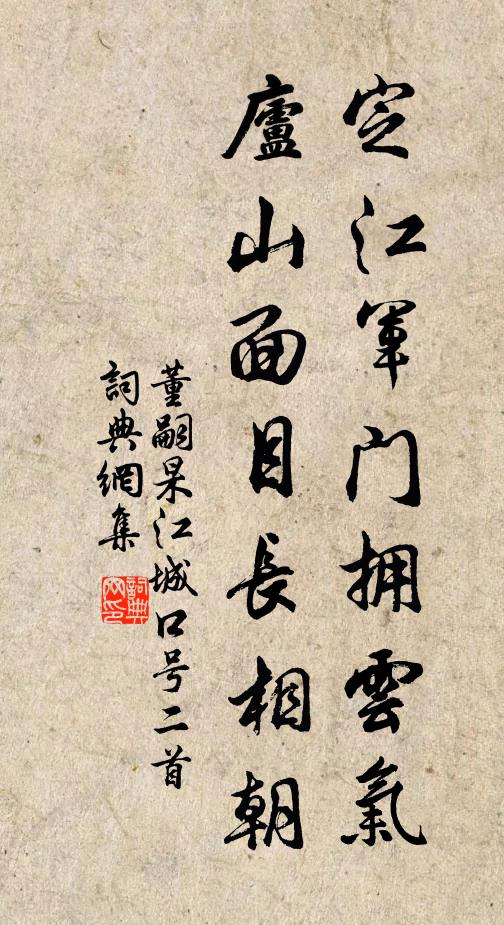 定江軍門拥雲氣
廬山面目長相朝
董嗣杲江城口号二首
詞典網集
詞典网印